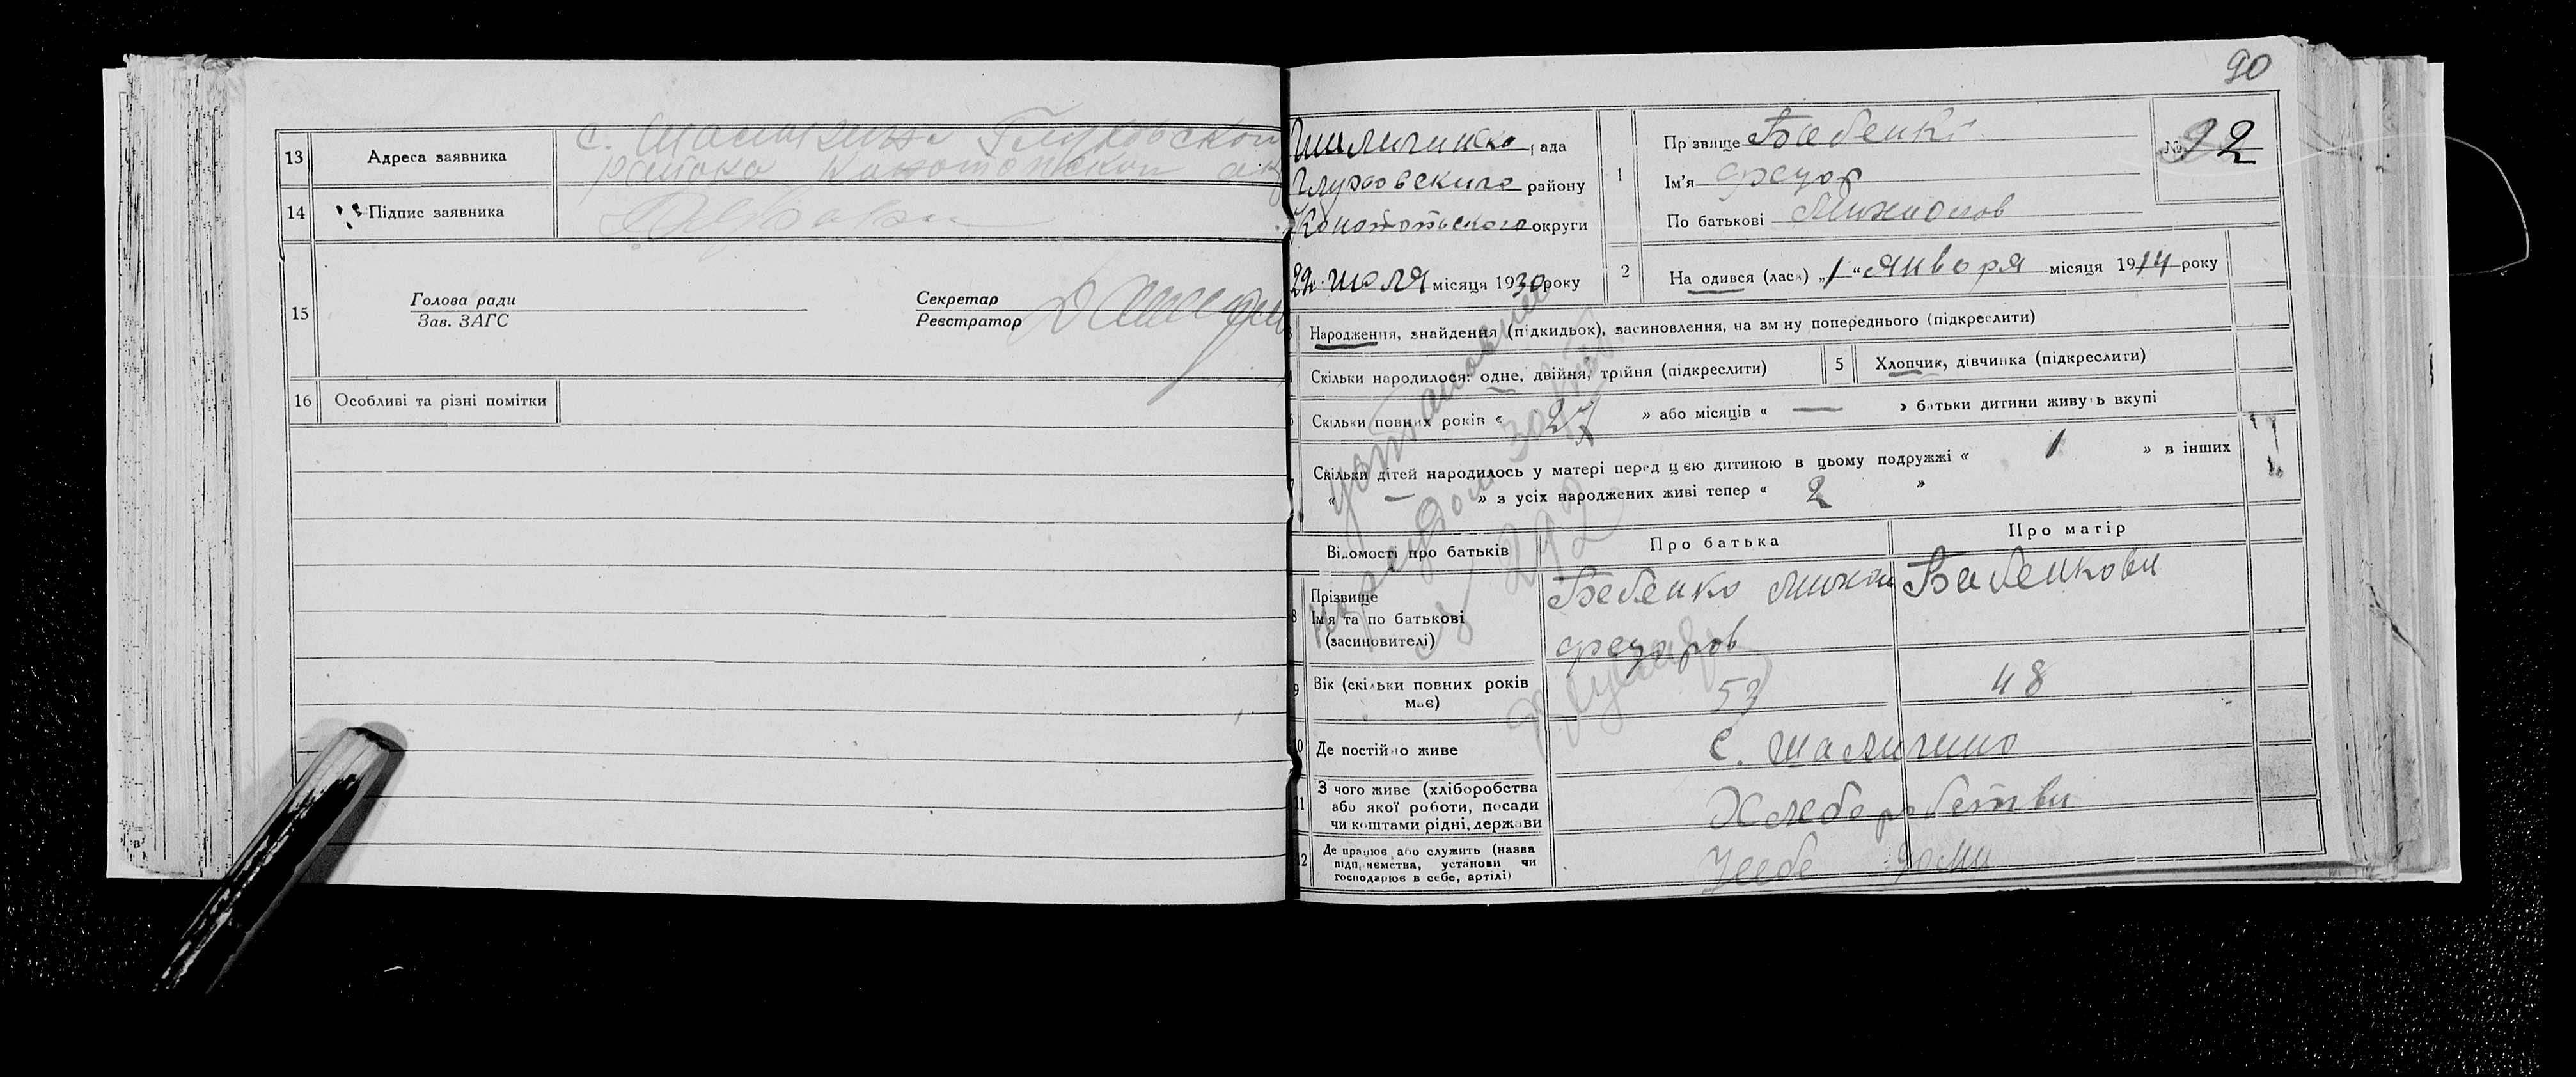 13 Адреса заявника
района
14 Підпис заявника
15 Голова ради
Зав. ЗАГС
Секретар
Реєстратор
16 Особливі та різні помітки
90
рада
Глуховского району
Конотопского округи
29 июля місяця 1930 року
1 Прізвище Бабенко
Ім'я Федор
По батькові Михайлов
№ 92
2 Народився (лася) „1“ января місяця 1914 року
Народження, знайдення (підкидьок), засиновлення, на зміну попереднього (підкреслити)
Скільки народилося: одне, двійня, трійня (підкреслити)
5 Хлопчик, дівчинка (підкреслити)
Скільки повних років « 27 » або місяців « — » батьки дитини живуть вкупі
Скільки дітей народилось у матері перед цією дитиною в цьому подружжі « 1 » в інших
« — » з усіх народжених живі тепер « 2 »
Відомості про батьків
Про батька
Про матір
8 Прізвище
Ім'я та по батькові
(засиновителі)
Бабенко
Федоров
Бабенкова
9 Вік (скільки повних років
має)
53
48
10 Де постійно живе
с. Шалигино
11 З чого живе (хліборобства
або якої роботи, посади
чи коштами рідні, держави
Хлеборобства
12 Де працює або служить (назва
підприємства, установи чи
господарює в себе, артілі)
дома